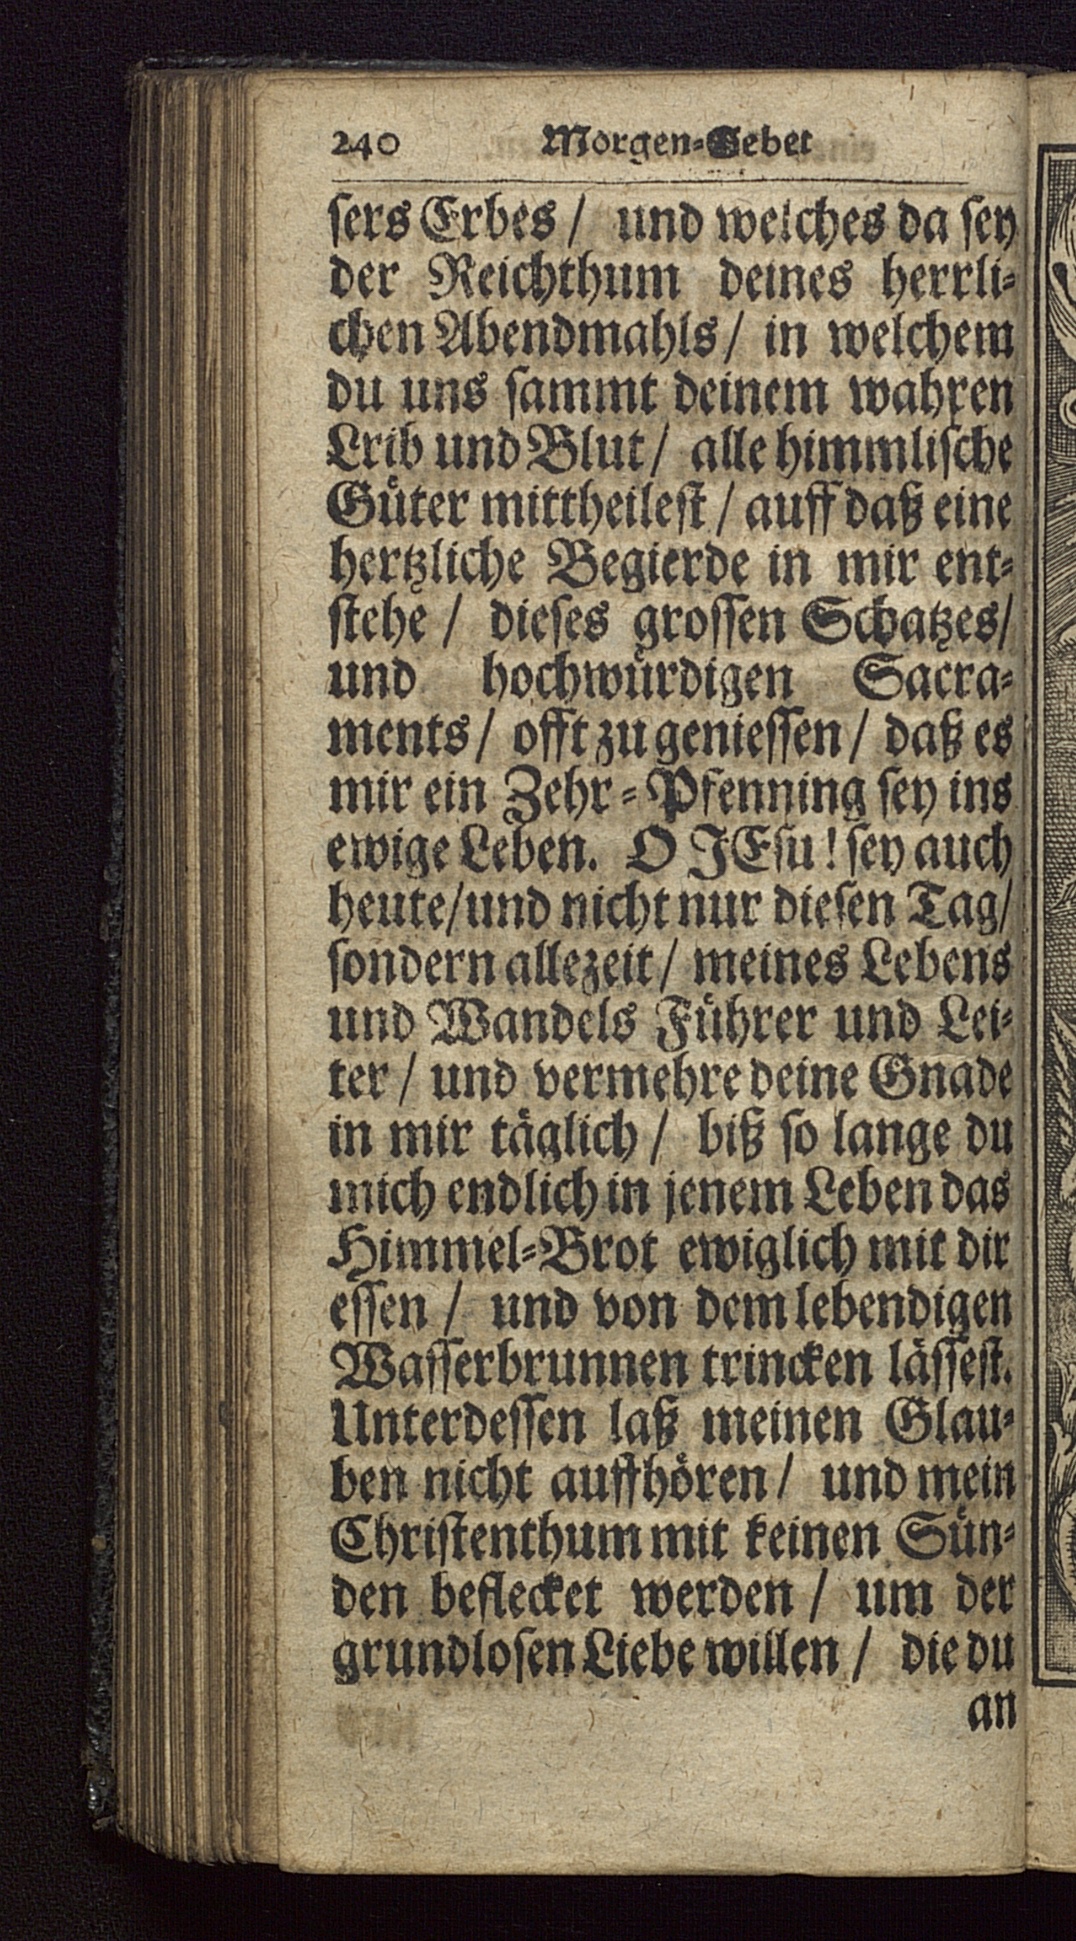 240 Morgen-Gebet
sers Erbes / und welches da sey
der Reichthum deines herrli-
chen Abendmahls / in welchem
du uns sammt deinem wahren
Lrib und Blut / alle himmlische
Güter mittheilest / auff daß eine
hertzliche Begierde in mir ent-
stehe / dieses grossen Schatzes /
und hochwürdigen Sacra-
ments / offt zu geniessen / daß es
mir ein Zehr-Pfenning sey ins
ewige Leben. O JEsu! sey auch
heute / und nicht nur diesen Tag /
sondern allezeit / meines Lebens
und Wandels Führer und Lei-
ter / und vermehre deine Gnade
in mir täglich / biß so lange du
mich endlich in jenem Leben das
Himmel-Brot ewiglich mit dir
essen / und von dem lebendigen
Wasserbrunnen trincken lässest.
Unterdessen laß meinen Glau-
ben nicht auffhören / und mein
Christenthum mit keinen Sün-
den beflecket werden / um der
grundlosen Liebe willen / die du
an